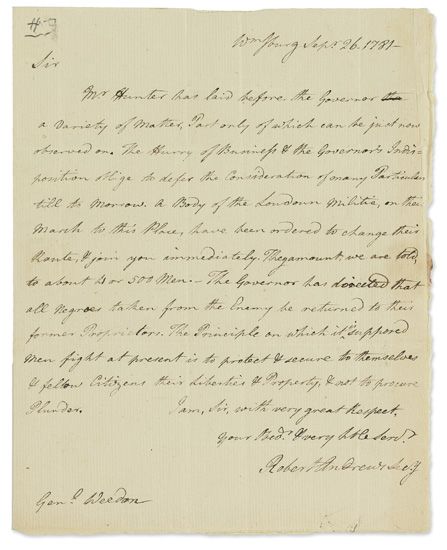 Wmsburg Sepr. 26. 1781-
Sir
Mr Hunter has laid before the Governor
a Variety of Matter, Part only of which can be just now
observed on. The Hurry of Business & the Governor's Indis-
position oblige to defer the Consideration of many Particulars
till to Morrow. A Body of the Loudoun Militia, on their
March to this Place, have been ordered to change their
Route, & join you immediately. They amount, we are told,
to about 4 or 500 Men.- The Governor has directed that
all Negroes taken from the Enemy be returned to their
former Proprietors. The Principle on which it is supposed
Men fight at present is to protect & secure to themselves
& fellow Citizens their Liberties & Property, & not to procure
Plunder. I am, Sir, with very great Respect,
your Obedt. & very hble Servt.
Robert Andrews Secy
Genl. Weedon